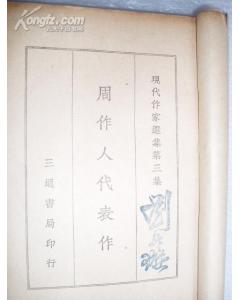 現代作家選集第三集
周作人代表作
三通書局印行